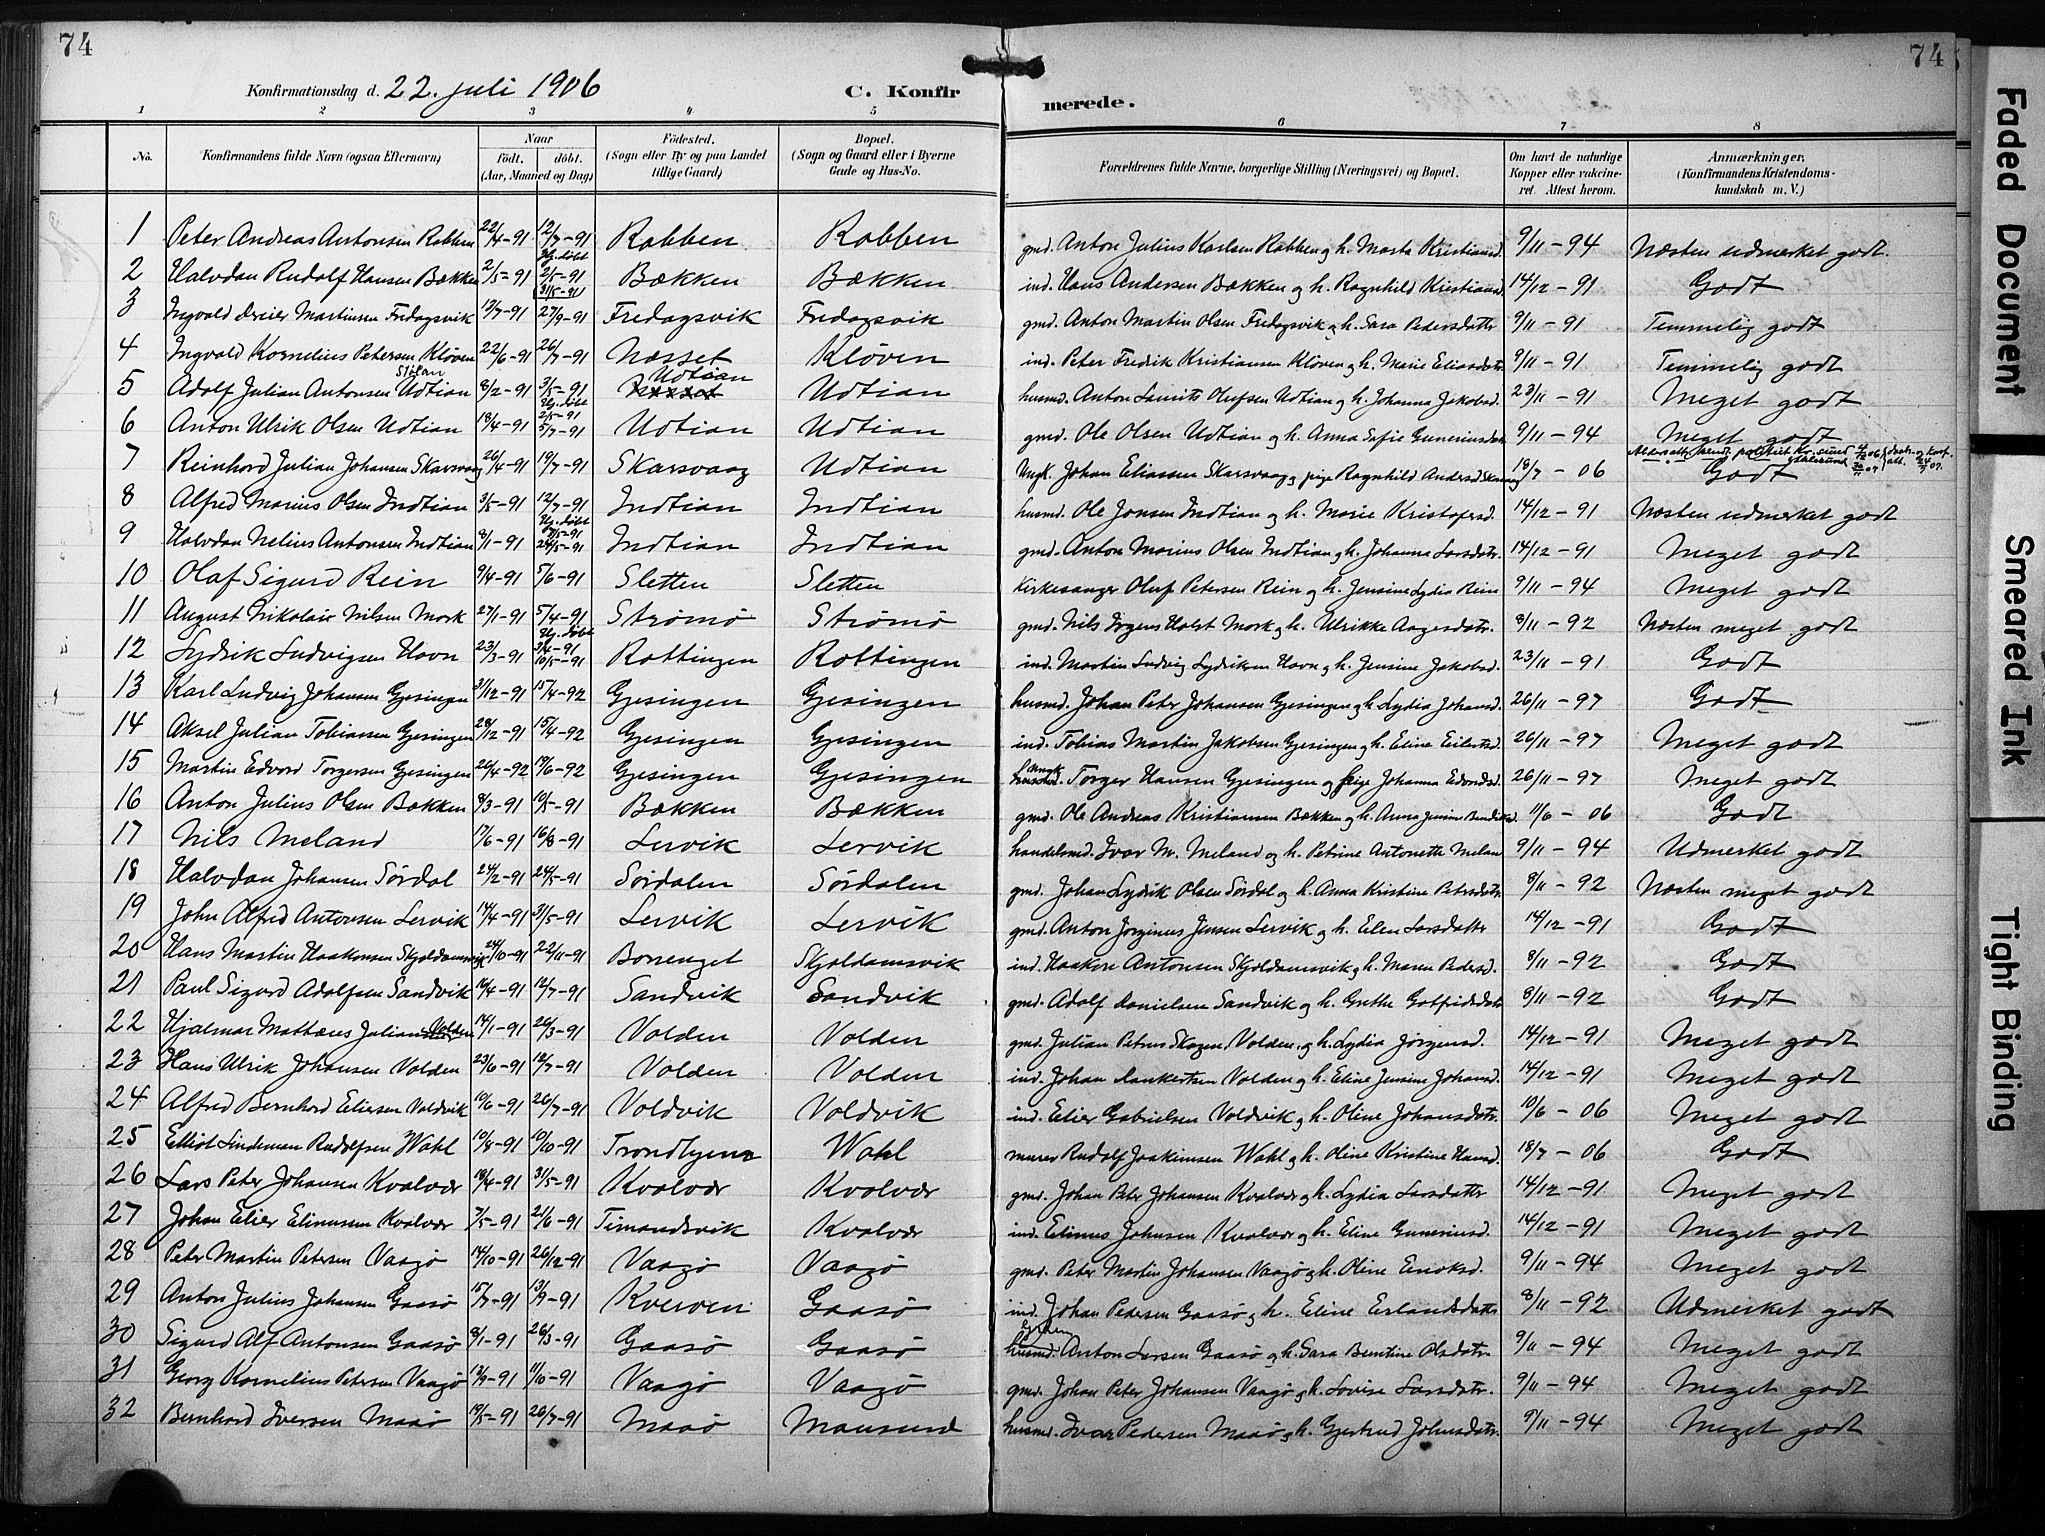 74
74
Konfirmationsdag d. 22. juli 1906
C. Konfir
merede.
1 2 3 4 5 6 7 8
No. Konfirmandens fulde Navn (ogsaa Efternavn) Naar födt. döbt. (Aar, Maaned og Dag) Födested. (Sogn eller By og paa Landet tillige Gaard) Bopæl. (Sogn og Gaard eller i Byerne Gade og Hus-No. Forældrenes fulde Navne, borgerlige Stilling (Næringsvei) og Bopæl. Om havt de naturlige Kopper eller vakcineret. Attest herom. Anmærkninger, (Konfirmandens Kristendomskundskab m. V.)
1 Peter Andreas Antonsen Rabben 22/4-91 12/7-91 Rabben Rabben gmd. Anton Julius Karlsen Rabben og h. Marta Kristiansd. 9/11-94 Næsten udmerket godt.
2 Halvdan Rudolf Hansen Bækken 2/5-91 Hj. döbt 2/5-91 31/5-91 Bækken Bækken ind. Hans Andersen Bækken og h. Ragnhild Kristiansd. 14/12-91 Godt
3 Ingvald Martinsen Fredagsvik 12/7-91 27/9-91 Fredagsvik Fredagsvik gmd. Anton Martin Olsen Fredagsvik og h. Sara Pedersdatter 9/11-91 Temmelig godt
4 Ingvald Kornelius Petersen Klöven 22/6-91 26/7-91 Næsset Klöven ind. Peter Fredrik Kristiansen Klöven og h. Marie Eliasdtr. 9/11-91 Temmelig godt
5 Adolf Julian Antonsen Udtian 8/2-91 3/5-91 Udtian Udtian husmd. Anton Laurits Olufsen Udtian og h. Johanna Jakobsd. 23/11-91 Meget godt
6 Anton Ulrik Olsen Udtian 18/4-91 Hj. döbt 2/5-91 5/7-91 Udtian Udtian gmd. Ole Olsen Udtian og h. Anna Sofie Guneriusdtr 9/11-94 Meget godt
7 Reinhard Julian Johansen Skarsvaag 26/4-91 19/7-91 Skarsvaag Udtian Ungk. Johan Eliassen Skarsvaag og pige Ragnhild Andersd Skarsvaag 18/7-06 Godt
8 Alfred Marius Olsen Indtian 3/5-91 12/7-91 Indtian Indtian husmd. Ole Jonsen Indtian og h. Marie Kristofersd. 14/12-91 Næsten udmerket godt
9 Halvdan Nelius Antonsen Indtian 8/1-91 Hj. döbt 24/5-91 Indtian Indtian gmd. Anton Marius Olsen Indtian og h. Johanna Larsdatr. 14/12-91 Meget godt
10 Olaf Sigurd Rein 9/4-91 5/6-91 Sletten Sletten Kirkesanger Oluf Petersen Rein og h. Jensine Lydia Rein 9/11-94 Meget godt
11 August Nikolai Nilsen Mork 27/1-91 5/4-91 Strömö Strömö gmd. Nils Holst Mork og h. Ulrikke Aagesdatr. 8/11-92 Næsten meget godt
12 Lydrik Ludvigsen Havn 23/3-91 Hj. döbt 3/4-91 10/5-91 Rottingen Rottingen ind. Martin Ludvig Lydriksen Havn og h. Jensine Jakobsd. 23/11-91 Godt
13 Karl Ludvig Johansen Gjesingen 31/12-91 15/4-92 Gjesingen Gjesingen husmd. Johan Peter Johansen Gjesingen og h. Lydia Johansd. 26/11-97 Godt
14 Aksel Julian Tobiassen Gjesingen 28/12-91 15/4-92 Gjesingen Gjesingen ind. Tobias Martin Jakobsen Gjesingen og h. Eline Eilertsd. 26/11-97 Meget godt
15 Martin Edvard Torgersen Gjesingen 26/4-92 19/6-92 Gjesingen Gjesingen ungk. Torger Hansen Gjesingen og pige Johanna Edvardsd. 26/11-97 Meget godt
16 Anton Julius Olsen Bækken 8/3-91 10/5-91 Bækken Bækken gmd. Ole Andreas Kristiansen Bækken og h. Anna Jensine 11/6-06 Godt
17 Nils Meland 17/6-91 16/8-91 Lervik Lervik handelsmd. Ivar M. Meland og h. Petrine Antonette Meland 9/11-94 Udmerket godt
18 Halvdan Johansen Sördal 24/2-91 24/5-91 Sördalen Sördalen gmd. Johan Lydrik Olsen Sördal og h. Anna Kristine Petersdatr 8/11-92 Næsten meget godt
19 John Alfred Antonsen Lervik 14/4-91 31/5-91 Lervik Lervik gmd. Anton Jörginus Jensen Lervik og h. Elen Larsdatter 14/12-91 Godt
20 Hans Martin Haakonsen Skjoldamsvik 24/10-91 22/11-91 Borrenget Skjoldamsvik ind. Haakon Antonsen Skjoldamsvik og h. Maren Pedersd. 8/11-92 Godt
21 Paul Sigurd Adolfsen Sandvik 16/4-91 12/7-91 Sandvik Sandvik gmd. Adolf Danielsen Sandvik og h. Grethe Gotfridsdatr 8/11-92 Godt
22 Hjalmar Mattæus Julians Volden 14/1-91 26/3-91 Volden Volden gmd. Julian Petrus Skagen, Volden, og h. Lydia Jörgensd. 14/12-91 Meget godt
23 Hans Ulrik Johansen Volden 23/6-91 12/7-91 Volden Volden ind. Johan Dankertsen Volden og h. Eline Jensine Johansd. 14/12-91 Meget godt
24 Alfred Bernhard Eliersen Voldvik 10/6-91 26/7-91 Voldvik Voldvik ind. Elier Gabrielsen Voldvik og h. Oline Johansdatr. 10/6-06 Meget godt
25 Elliot Lindeman Rudolfsen Wahl 10/8-91 10/10-91 Trondhjem Wahl murer Rudolf Joakimsen Wahl og h. Oline Kristine Hansd. 18/7-06 Godt
26 Lars Peter Johansen Kvalvær 18/4-91 31/5-91 Kvalvær Kvalvær gmd. Johan Peter Johansen Kvalvær og h. Lydia Larsdatter 14/12-91 Meget godt
27 Johan Elier Elinusen Kvalvær 7/5-91 21/6-91 Timandsvik Kvalvær ind. Elinus Johnsen Kvalvær og h. Eline Guneriusd. 14/12-91 Meget godt
28 Peter Martin Petersen Vaagö 14/10-91 26/12-91 Vaagö Vaagö gmd. Peter Martin Johansen Vaagö og h. Oline Eenoksd. 9/11-94 Meget godt
29 Anton Julius Johansen Gaasö 15/7-91 13/9-91 Kverven Gaasö ind. Johan Pedersen Gaasö og h. Eline Erlandsdatter 8/11-92 Udmerket godt
30 Sigurd Alf Antonsen Gaasö 8/1-91 26/3-91 Gaasö Gaasö husmd. Anton Larsen Gaasö og h. Sara Berntine Olsdatr. 9/11-94 Meget godt
31 Georg Kornelius Petersen Vaagö 13/9-91 11/10-91 Vaagö Vaagö gmd. Johan Peter Johansen Vaagö og h. Lovise Larsdatr. 9/11-94 Meget godt
32 Bernhard Iversen Maaö 19/5-91 26/7-91 Maaö Mausund husmd. Ivar Pedersen Maaö og h. Gjertrud Johnsdatr. 9/11-94 Meget godt
Faded Document
Smeared Ink
Tight Binding